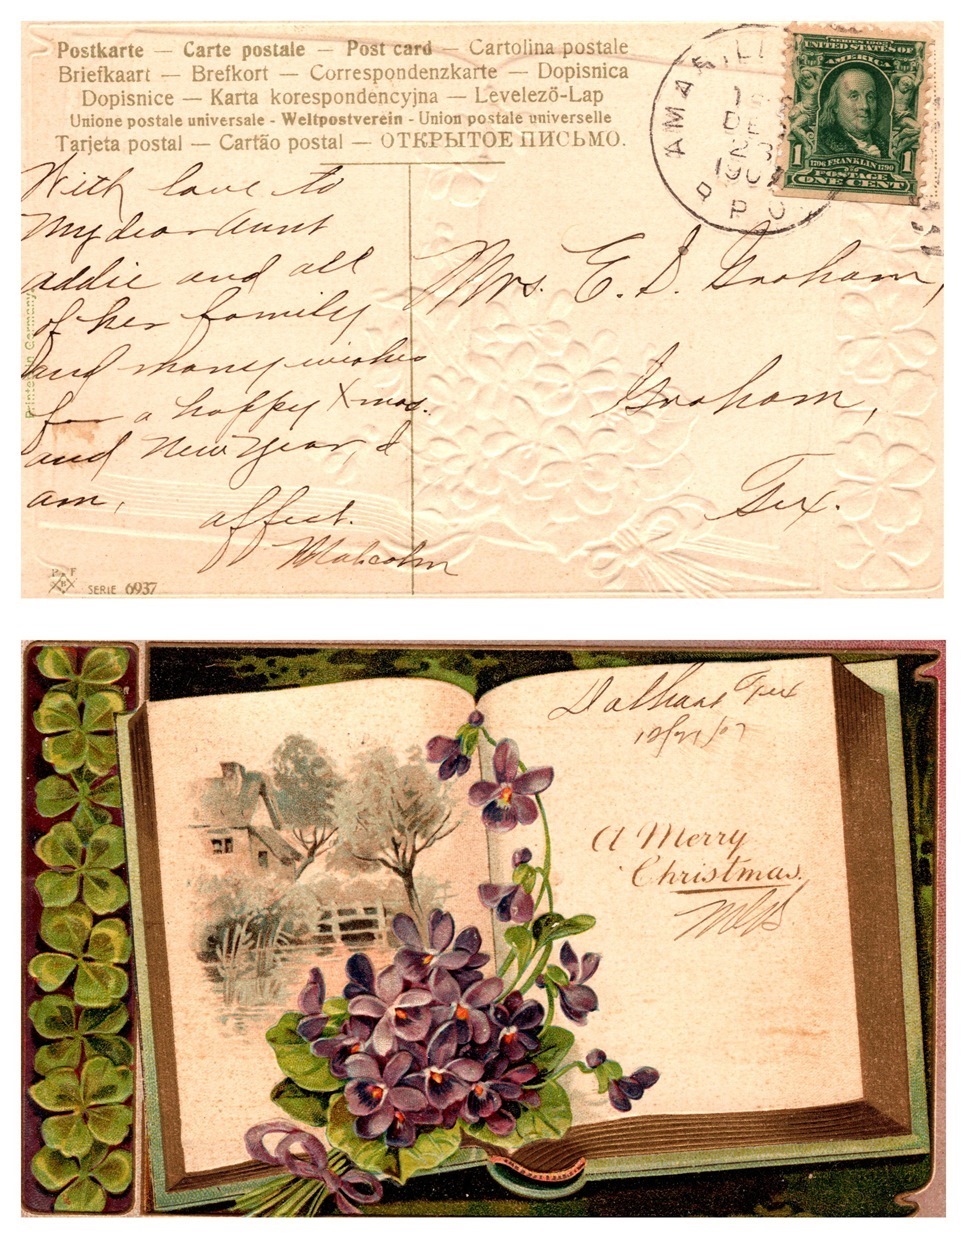 Postkarte — Carte postale — Post card — Cartolina postale
Briefkaart — Brefkort — Correspondenzkarte — Dopisnica
Dopisnice — Karta korespondencyjna — Levelezö-Lap
Unione postale universale - Weltpostverein - Union postale universelle
Tarjeta postal — Cartão postal — ОТКРЫТОЕ ПИСЬМО.
AMARILL
DEC
23
1907
R.P.O.
SERIES 1902
UNITED STATES OF
AMERICA
1 1
1706 FRANKLIN 1790
POSTAGE
ONE CENT
With love to
My dear Aunt
addie and all
of her family
and many wishes
for a happy Xmas.
and New Year, I
am,
affect.
Malcolm
Mrs. E. D. Graham,
Graham,
Tex.
Printed in Germany
P F
B
SERIE 6937
Dalhart Tex
12/21/07
A Merry
Christmas.